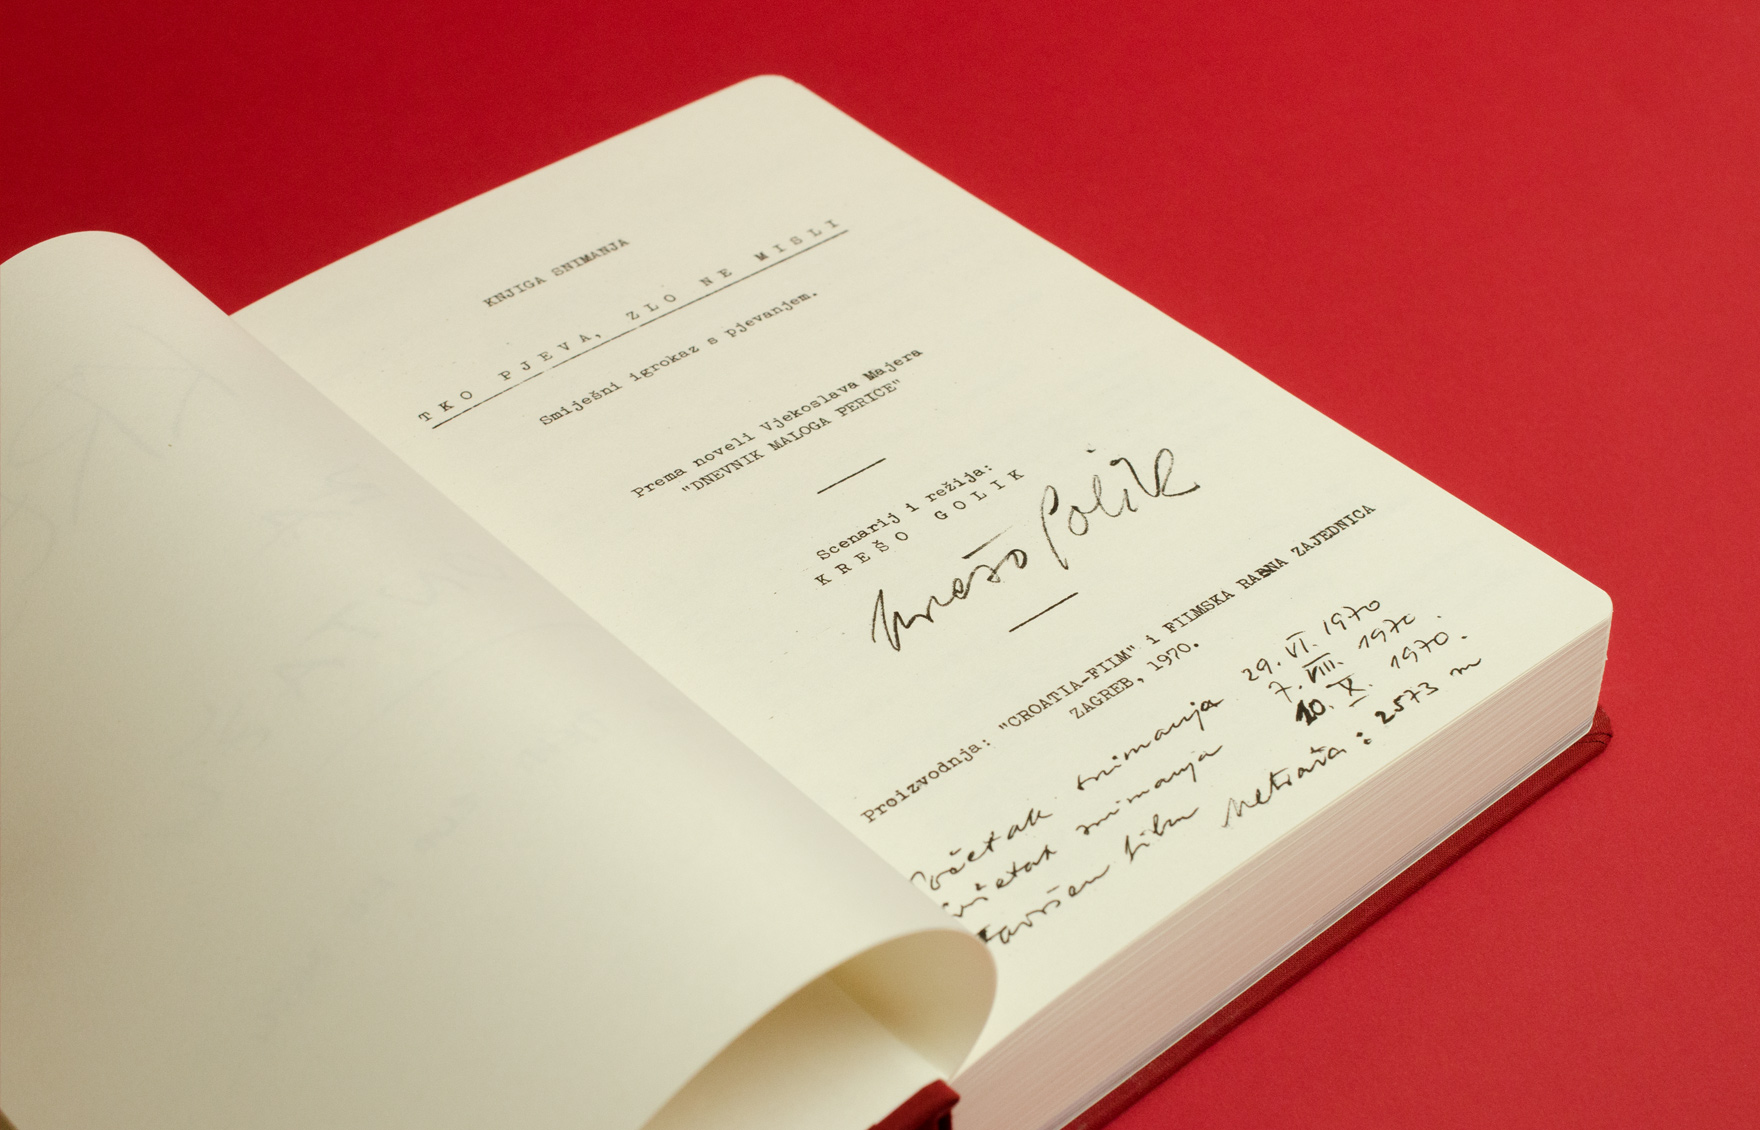 KNJIGA SNIMANJA
TKO PJEVA, ZLO NE MISLI
Smiješni igrokaz s pjevanjem.
Prema noveli Vjekoslava Majera
"DNEVNIK MALOGA PERICE"
Scenarij i režija:
KREŠO GOLIK
Krešo Golik
Proizvodnja: "CROATIA-FILM" i FILMSKA RADNA ZAJEDNICA
ZAGREB, 1970.
Početak snimanja 29. VI. 1970
Svršetak snimanja 7. VIII. 1970.
Završen film 10. X. 1970.
Metraža: 2573 m